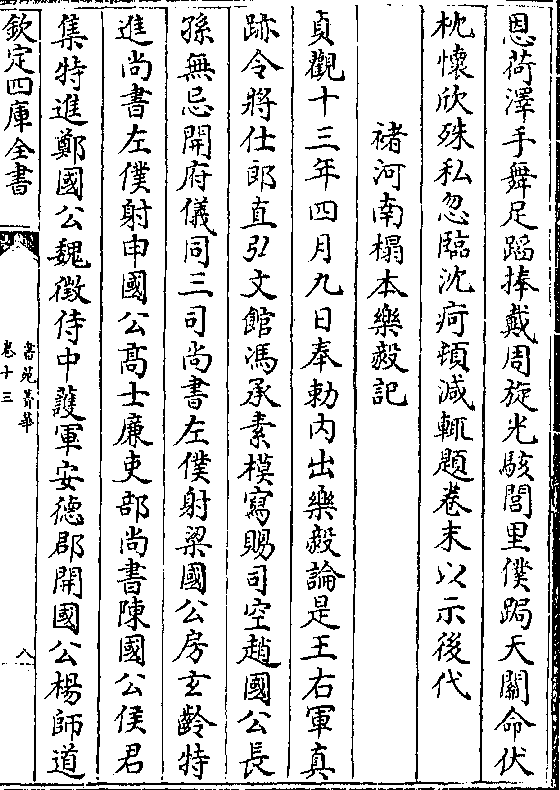 恩荷澤手舞足蹈捧戴周旋光駭閭里僕跼天關命伏
枕懷欣殊私忽臨沈疴頓減輒題卷末以示後代
褚河南榻本樂毅記
貞觀十三年四月九日奉勅內出樂毅論是王右軍真
跡令將仕郎直弘文館馮承素模寫賜司空趙國公長
孫無忌開府儀同三司尚書左僕射梁國公房玄齡特
進尚書左僕射申國公髙士廉吏部尚書陳國公侯君
集特進鄭國公魏徵侍中護軍安德郡開國公楊師道
欽定四庫全書
書苑菁華
卷十三
八